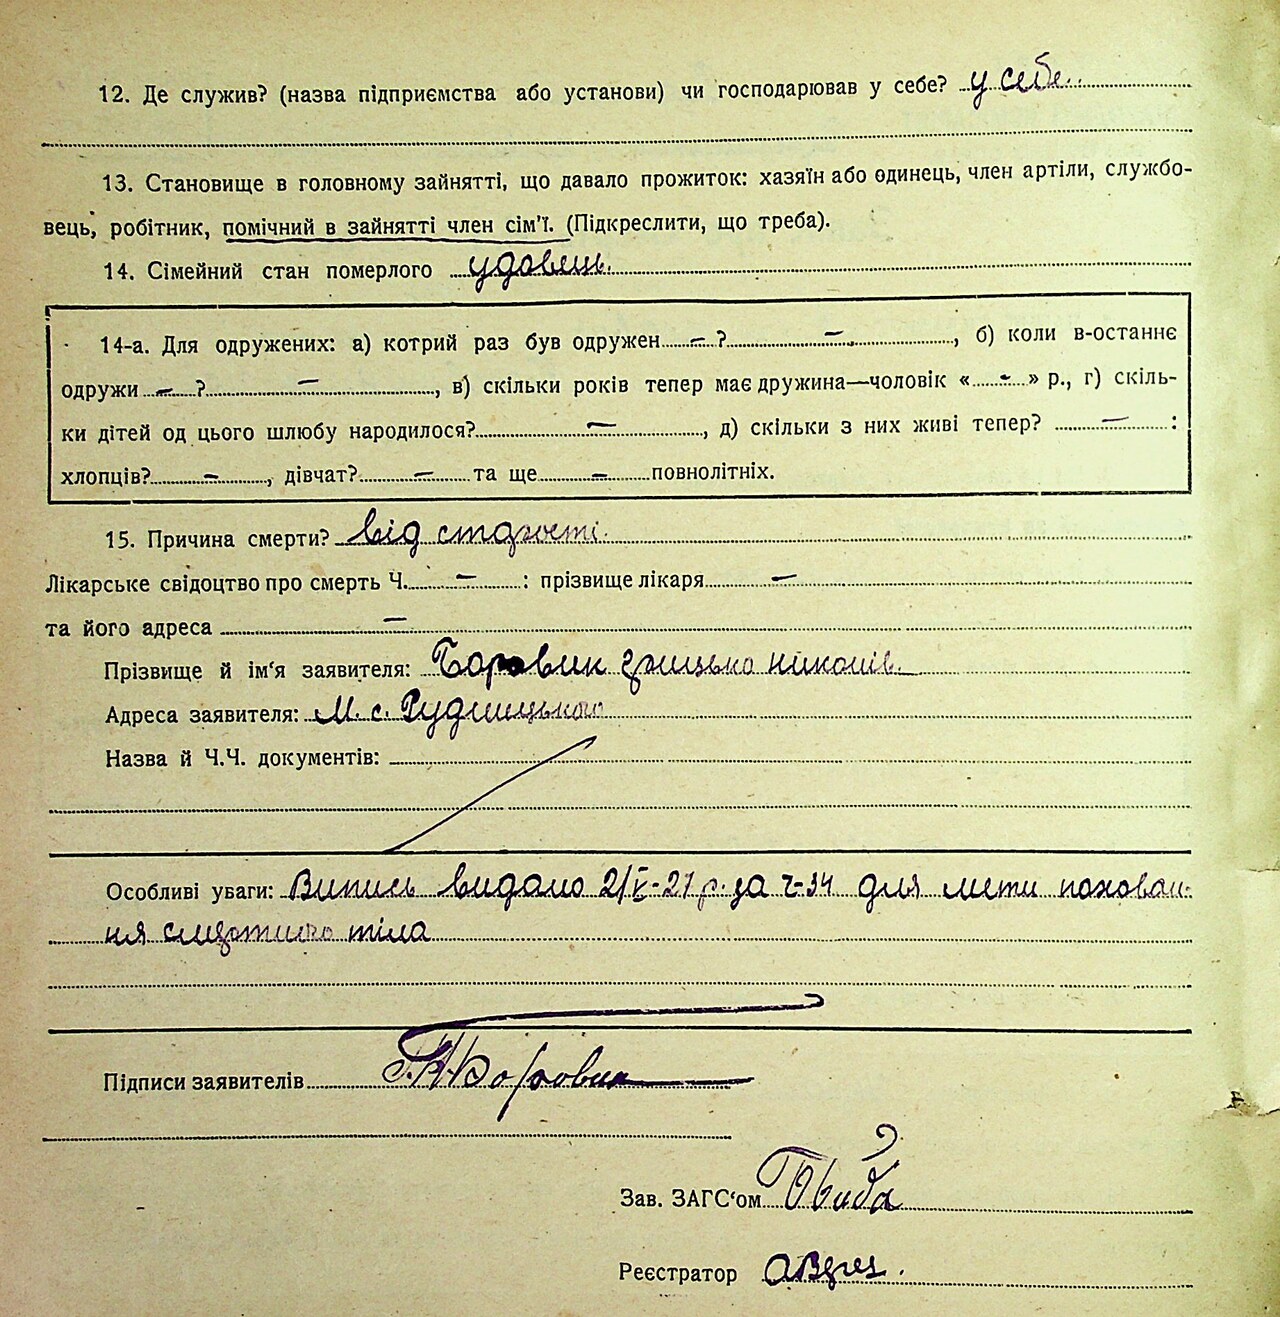 12. Де служив? (назва підприємства або установи) чи господарював у себе? у себе.
13. Становище в головному зайнятті, що давало прожиток: хазяїн або одинець, член артіли, службо-
вець, робітник, помічний в зайнятті член сім'ї. (Підкреслити, що треба).
14. Сімейний стан померлого удовець.
14-а. Для одружених: а) котрий раз був одружен — ? —, б) коли в-останнє
одружи — ? —, в) скільки років тепер має дружина—чоловік « — » р., г) скіль-
ки дітей од цього шлюбу народилося? —, д) скільки з них живі тепер? — :
хлопців? —, дівчат? — та ще — повнолітніх.
15. Причина смерти? від старости.
Лікарське свідоцтво про смерть Ч. — : прізвище лікаря —
та його адреса —
Прізвище й ім'я заявителя: Боровик Грицько Никонів.
Адреса заявителя: М. с. Рудницького
Назва й Ч.Ч. документів:
Особливі уваги: Випись видано 2/V-27 р. за ч-34 для мети похован-
ня смертного тіла
Підписи заявителів Г. Н. Боровик
Зав. ЗАГС'ом
Реєстратор